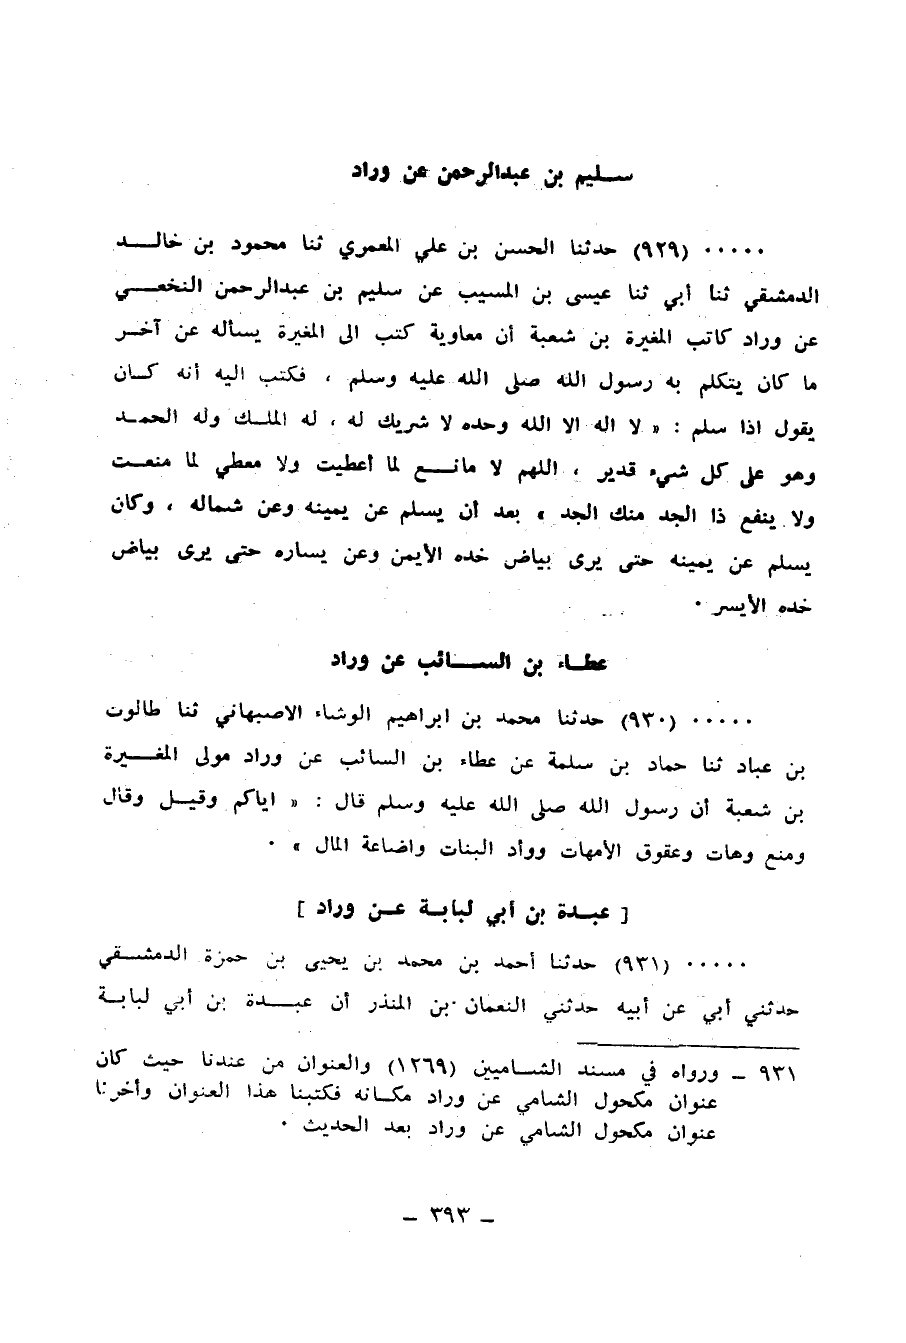 سليم بن عبدالرحمن عن وراد
۰۰۰۰۰ (٩٢٩) حدثنا الحسن بن علي المعمري ثنا محمود بن خالد
الدمشقي ثنا أبي ثنا عيسى بن المسيب عن سليم بن عبدالرحمن النخعي
عن وراد كاتب المغيرة بن شعبة أن معاوية كتب الى المغيرة يسأله عن آخر
ما كان يتكلم به رسول الله صلى الله عليه وسلم ، فكتب اليه أنه كان
يقول اذا سلم : « لا اله الا الله وحده لا شريك له ، له الملك وله الحمد
وهو على كل شيء قدير ، اللهم لا مانع لما أعطيت ولا معطي لما منعت
ولا ينفع ذا الجد منك الجد » بعد أن يسلم عن يمينه وعن شماله ، وكان
يسلم عن يمينه حتى يرى بياض خده الأيمن وعن يساره حتى يرى بياض
خده الأيسر ٠
عطاء بن السائب عن وراد
۰۰۰۰۰ (٩٣٠) حدثنا محمد بن ابراهيم الوشاء الاصبهاني ثنا طالوت
بن عباد ثنا حماد بن سلمة عن عطاء بن السائب عن وراد مولى المغيرة
بن شعبة أن رسول الله صلى الله عليه وسلم قال : « اياكم وقيل وقال
ومنع وهات وعقوق الأمهات ووأد البنات واضاعة المال » ٠
[ عبدة بن أبي لبابة عن وراد ]
۰۰۰۰۰ (٩٣١) حدثنا أحمد بن محمد بن يحيى بن حمزة الدمشقي
حدثني أبي عن أبيه حدثني النعمان بن المنذر أن عبدة بن أبي لبابة
٩٣١ - ورواه في مسند الشاميين (١٢٦٩) والعنوان من عندنا حيث كان
عنوان مكحول الشامي عن وراد مكانه فكتبنا هذا العنوان وأخرنا
عنوان مكحول الشامي عن وراد بعد الحديث ٠
- ٣٩٣ -